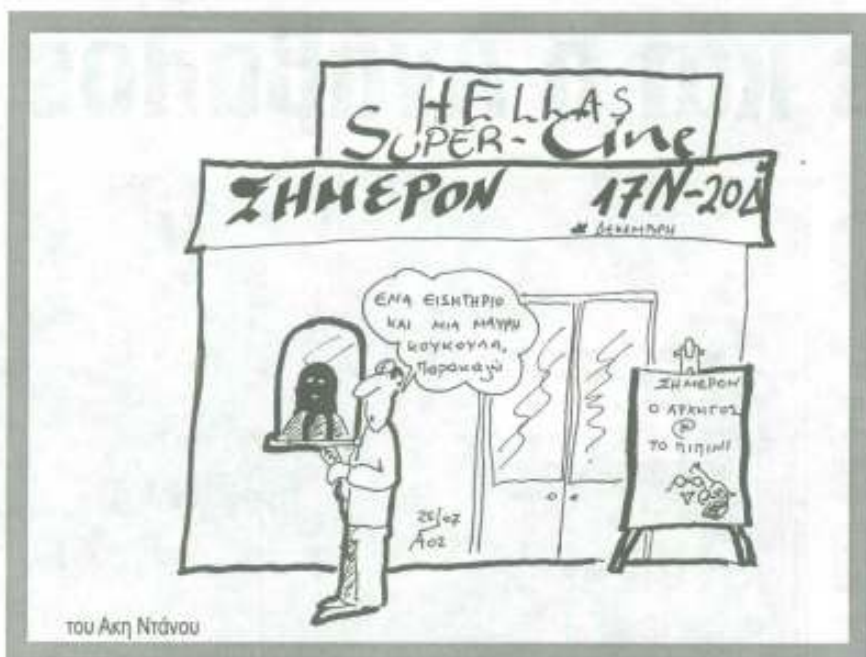 HELLAS
SUPER-Cine
ΣΗΜΕΡΟΝ 17Ν-20Δ
ΔΕΚΕΜΒΡΗ
ΕΝΑ ΕΙΣΗΤΗΡΙΟ
ΚΑΙ ΜΙΑ ΜΑΥΡΗ
ΚΟΥΚΟΥΛΑ,
Παρακαλώ
ΣΗΜΕΡΟΝ
Ο ΑΡΧΗΓΟΣ
@
ΤΟ ΠΙΠΙΝΙ
25/07
Α02
του Ακη Ντάνου